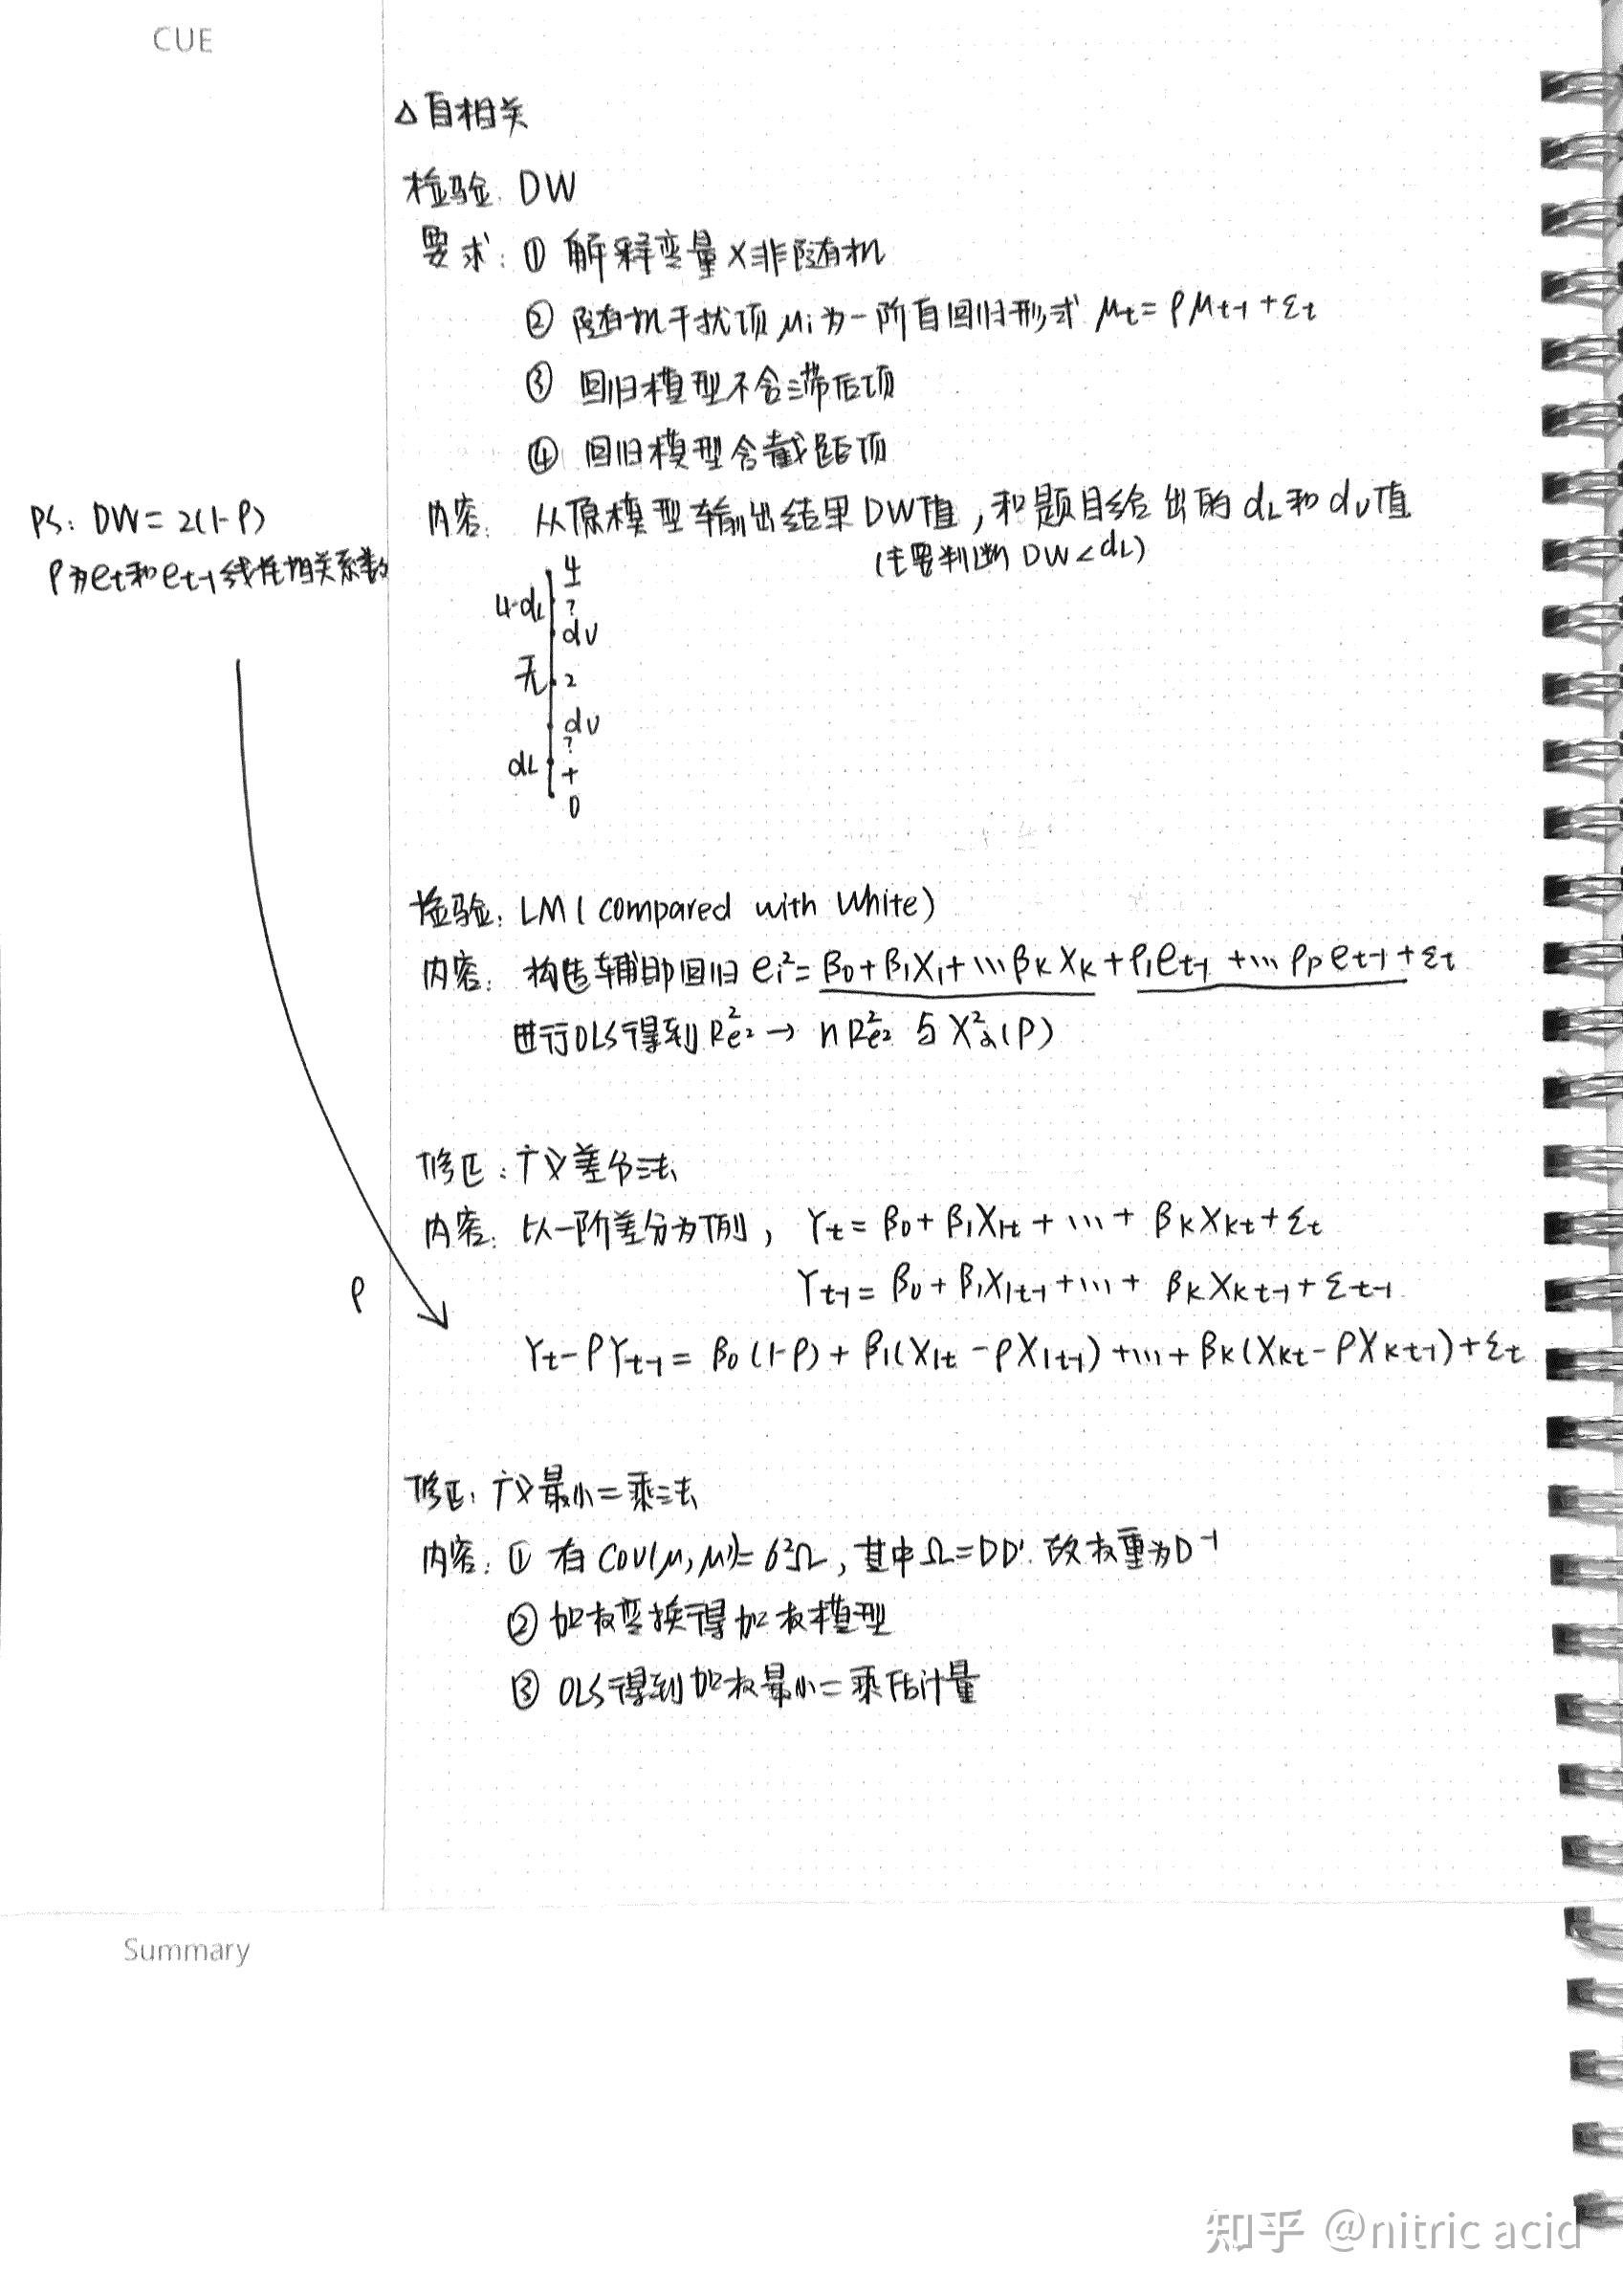 CUE
△自相关
检验: DW
要求: ① 解释变量X非随机
② 随机干扰项μi为一阶自回归形式 μt = ρμt-1 + εt
③ 回归模型不含滞后项
④ 回归模型含截距项
PS: DW = 2(1-ρ)
ρ为et和et-1线性相关系数
内容: 从原模型输出结果DW值, 和题目给出的dL和dU值
(主要判断 DW < dL)
4
4-dL ?
dU
无 2
dU
?
dL +
0
检验: LM (compared with White)
内容: 构造辅助回归 ei² = β0 + β1X1 + ... βkXk + ρ1et-1 + ... ρpet-1 + εt
进行OLS得到Re²² → nRe²² 与 χ²α(p)
修正: 广义差分法
内容: 以一阶差分为例, Yt = β0 + β1X1t + ... + βkXkt + εt
Yt-1 = β0 + β1X1t-1 + ... + βkXkt-1 + εt-1
ρ
Yt - ρYt-1 = β0(1-ρ) + β1(X1t - ρX1t-1) + ... + βk(Xkt - ρXkt-1) + εt
修正: 广义最小二乘法
内容: ① 有 COV(μ, μ') = σ²Ω, 其中Ω = DD'. 故权重为D⁻¹
② 加权变换得加权模型
③ OLS得到加权最小二乘估计量
Summary
知乎 @nitric acid